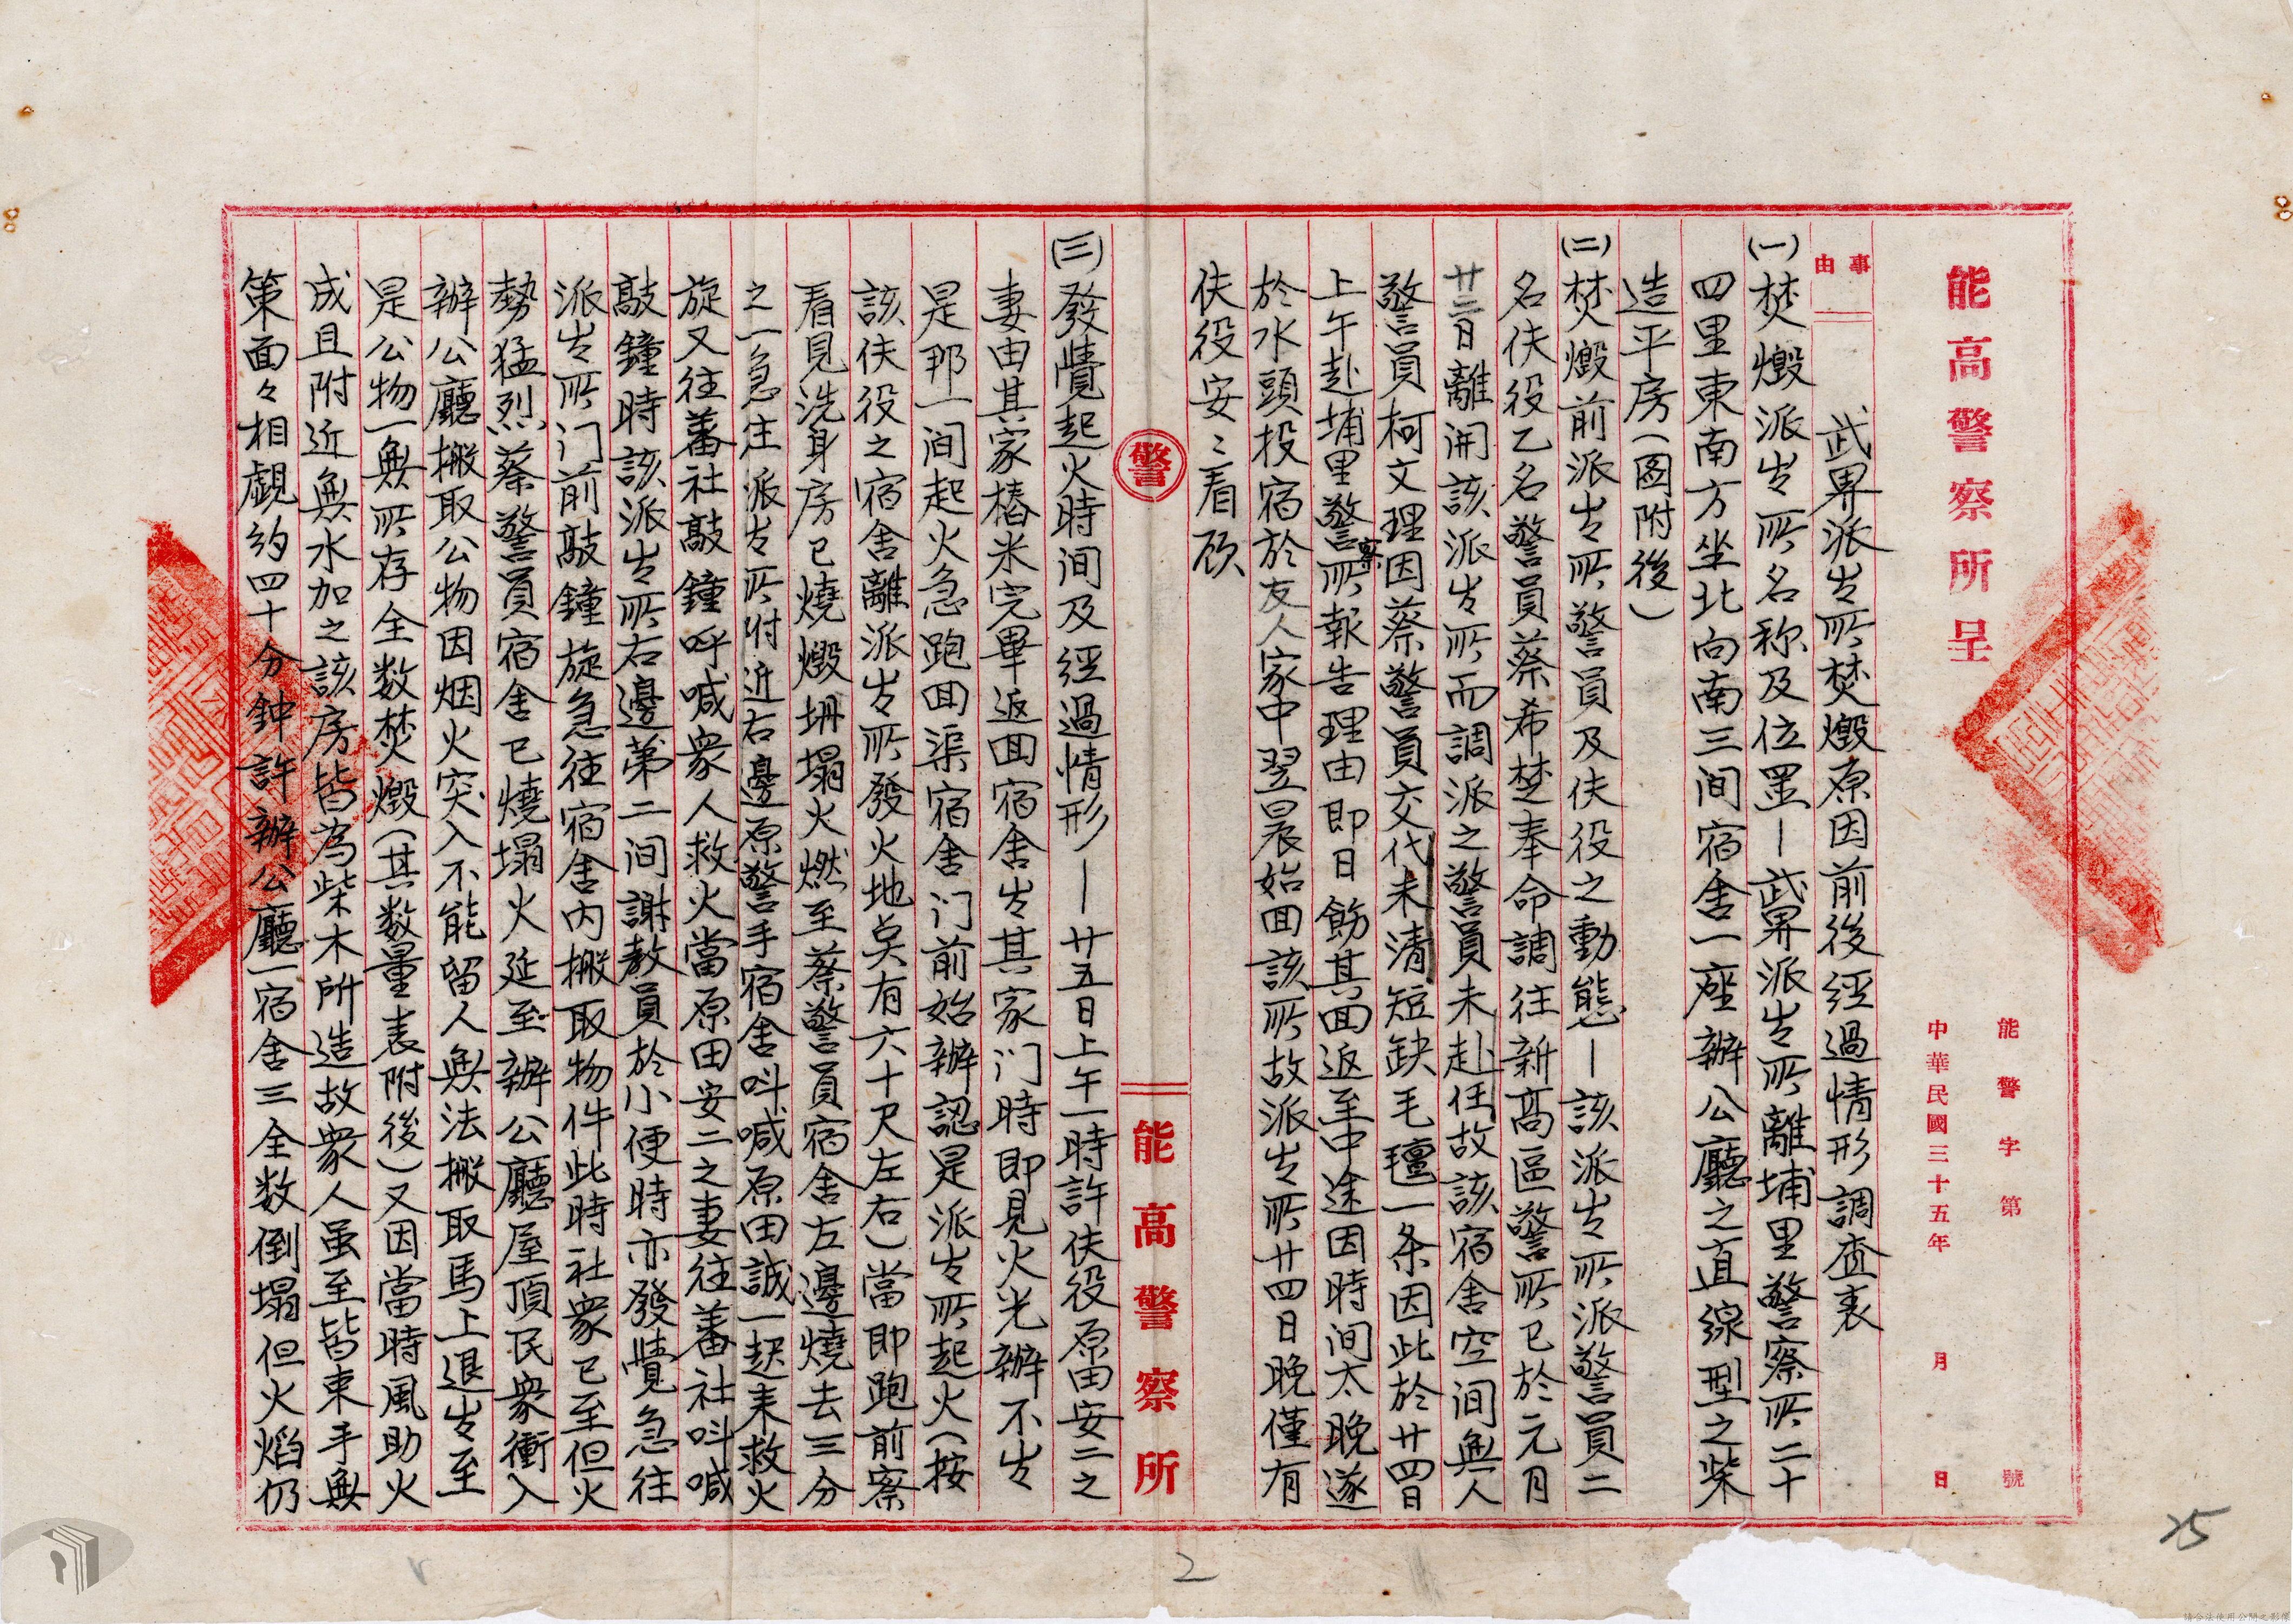 能高警察所呈
能警字第　　號
中華民國三十五年　月　日
事由
武界派出所焚燬原因前後經過情形調查表
(一)焚燬派出所名称及位置—武界派出所離埔里警察所二十
四里東南方坐北向南三间宿舍一座辦公廳之直線型之柴
造平房(图附後)
(二)焚燬前派出所警員及伕役之動態—該派出所派警員二
名伕役乙名警員蔡希楚奉命調往新高區警所已於元月
廿二日離開該派出所而調派之警員未赴任故該宿舍空间無人
警員柯文理因蔡警員交代未清短缺毛氊一条因此於廿四日
上午赴埔里警察所報告理由即日飭其囬返至中途因時间太晚遂
於水頭投宿於友人家中翌晨始囬該所故派出所廿四日晚僅有
伕役安二看顾
警
能高警察所
(三)發覺起火時间及經過情形—廿五日上午一時許伕役原田安二之
妻由其家樁米完畢返囬宿舍出其家门時即見火光辦不出
是那一间起火急跑囬渠宿舍门前始辦認是派出所起火(按
該伕役之宿舍離派出所發火地点有六十尺左右)當即跑前察
看見洗身房已燒燬坍塌火燃至蔡警員宿舍左邊燒去三分
之一急往派出所附近右邊原警手宿舍叫喊原田誠一起来救火
旋又往蕃社敲鐘呼喊衆人救火當原田安二之妻往蕃社叫喊
敲鐘時該派出所右邊第二间謝教員於小便時亦發覺急往
派出所门前敲鐘旋急往宿舍内搬取物件此時社衆已至但火
勢猛烈蔡警員宿舍已燒塌火延至辦公廳屋頂民衆衝入
辦公廳搬取公物因烟火突入不能留人無法搬取馬上退出至
是公物一無所存全数焚燬(其数量表附後)又因當時風助火
成且附近無水加之該房皆為柴木所造故衆人虽至皆束手無
策面々相覷約四十分鈡許辦公廳一宿舍三全数倒塌但火焰仍
25
2
請合法使用公開之影像